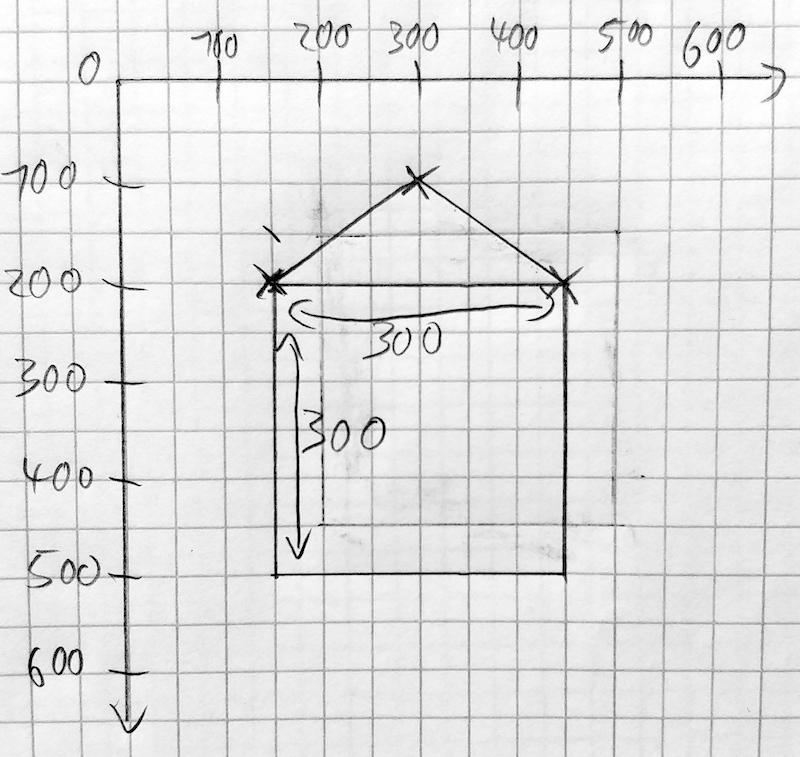 100 200 300 400 500 600
0
100
200
300
300
300
400
500
600